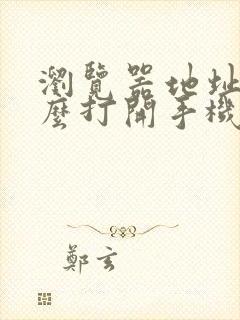 瀏覽器地址
麼打開手機
鄭玄